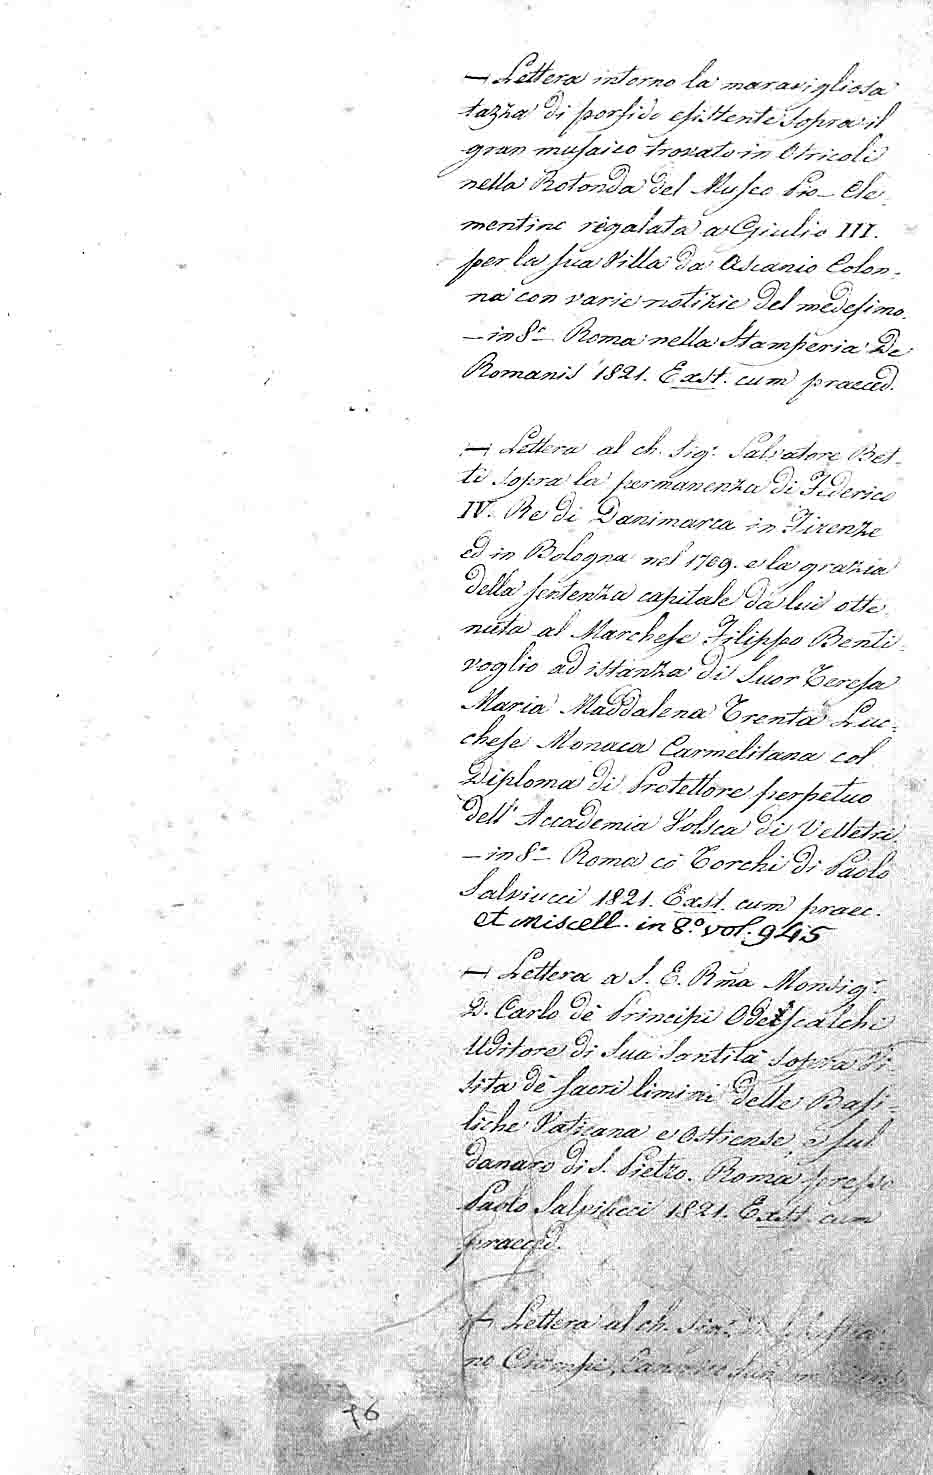 — Lettera intorno la maravigliosa
tazza di porfido esistente sopra il
gran musaico trovato in Otricoli
nella Rotonda del Museo Pio-Cle-
mentino regalata a Giulio III.
per la sua Villa da Ascanio Colon-
na con varie notizie del medesimo.
— in 8.º — Roma nella Stamperia De
Romanis 1821. Exst. cum praeced.
— Lettera al ch. Sig.r Salvatore Bet-
ti sopra la permanenza di Federico
IV. Re di Danimarca in Firenze
ed in Bologna nel 1709. e la grazia
della sentenza capitale da lui otte-
nuta al Marchese Filippo Benti-
voglio ad istanza di Suor Teresa
Maria Maddalena Trenta Luc-
chese Monaca Carmelitana col
Diploma di Protettore perpetuo
dell' Accademia Volsca di Velletri.
— in 8.º — Roma cò Torchi di Paolo
Salviucci 1821. Exst. cum praec.
et Miscell. in 8.º vol. 945
— Lettera a S. E. Rma Monsig.r
D. Carlo dè Principi Odescalchi
Uditore di Sua Santità sopra Vi-
sita dè sacri limini delle Basi-
liche Vaticana e Ostiense, e sul
danaro di S. Pietro. Roma presso
Paolo Salviucci 1821. Exst. cum
praeced.
— Lettera al ch. Sig.r
no Ciampi, Canonico
76